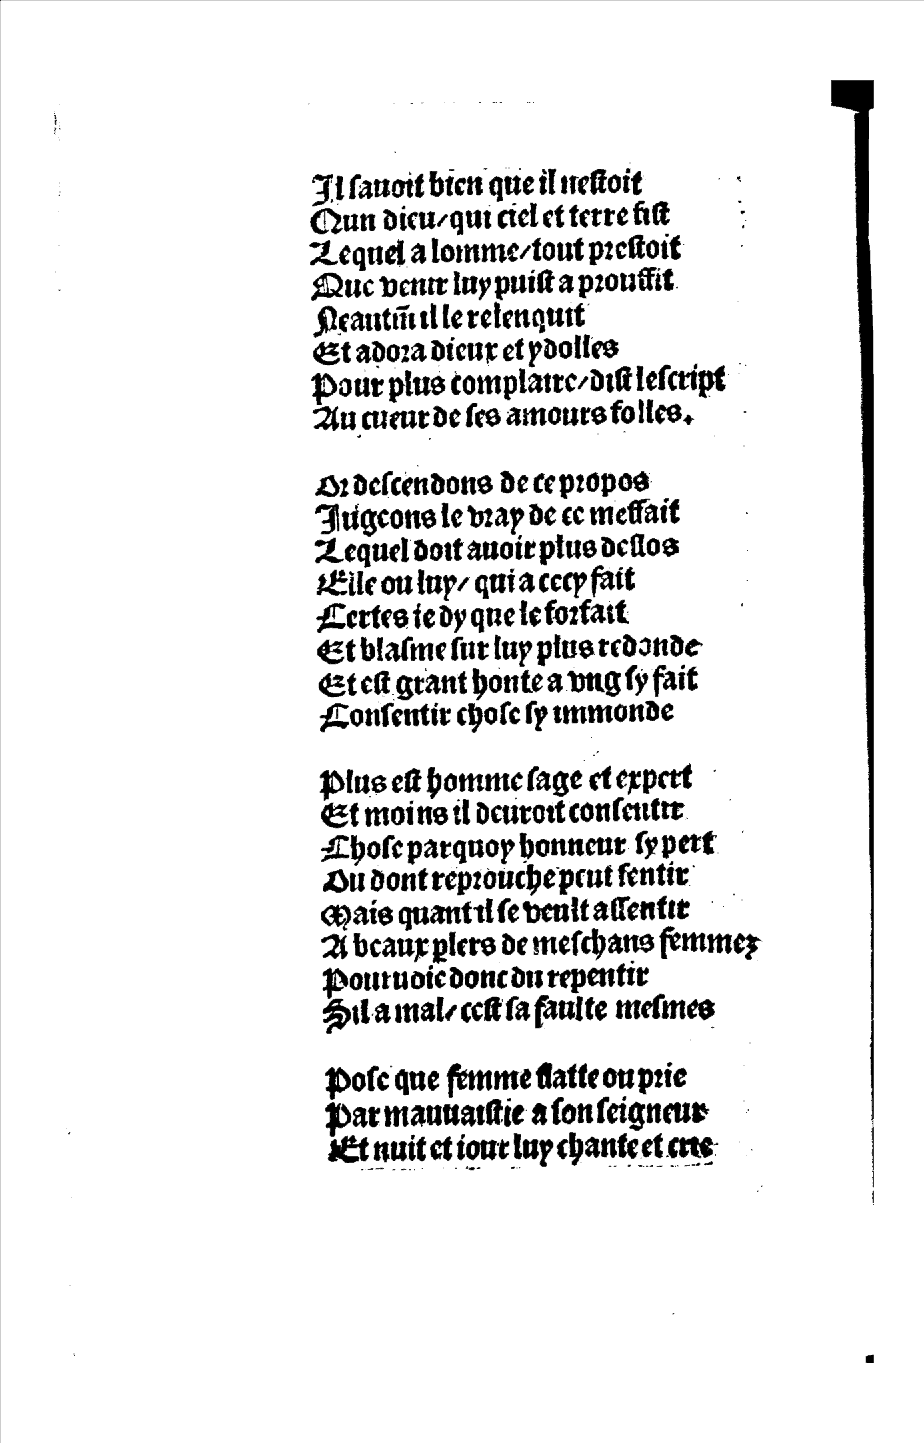 Il sauoit bien que il nestoit
Qun dieu/ qui ciel et terre fist
Lequel a lomme/ tout prestoit
Que venir luy puist a prouffit
Neantm̄ il le relenquit
Et adora dieux et ydolles
Pour plus complaire/ dist lescript
Au cueur de ses amours folles.

Or descendons de ce propos
Jugeons le vray de ce meffait
Lequel doit auoir plus deslos
Elle ou luy/ qui a cecy fait
Certes ie dy que le forfait
Et blasme sur luy plus redonde
Et est grant honte a vng sy fait
Consentir chose sy immonde

Plus est homme sage et expert
Et moins il deuroit consentir
Chose parquoy honneur sy pert
Ou dont reprouche peut sentir
Mais quant il se veult assentir
A beaux plers de meschans femmez
Pouruoie donc du repentir
Sil a mal/ cest sa faulte mesmes

Pose que femme flatte ou prie
Par mauuaistie a son seigneur
Et nuit et iour luy chante et crie